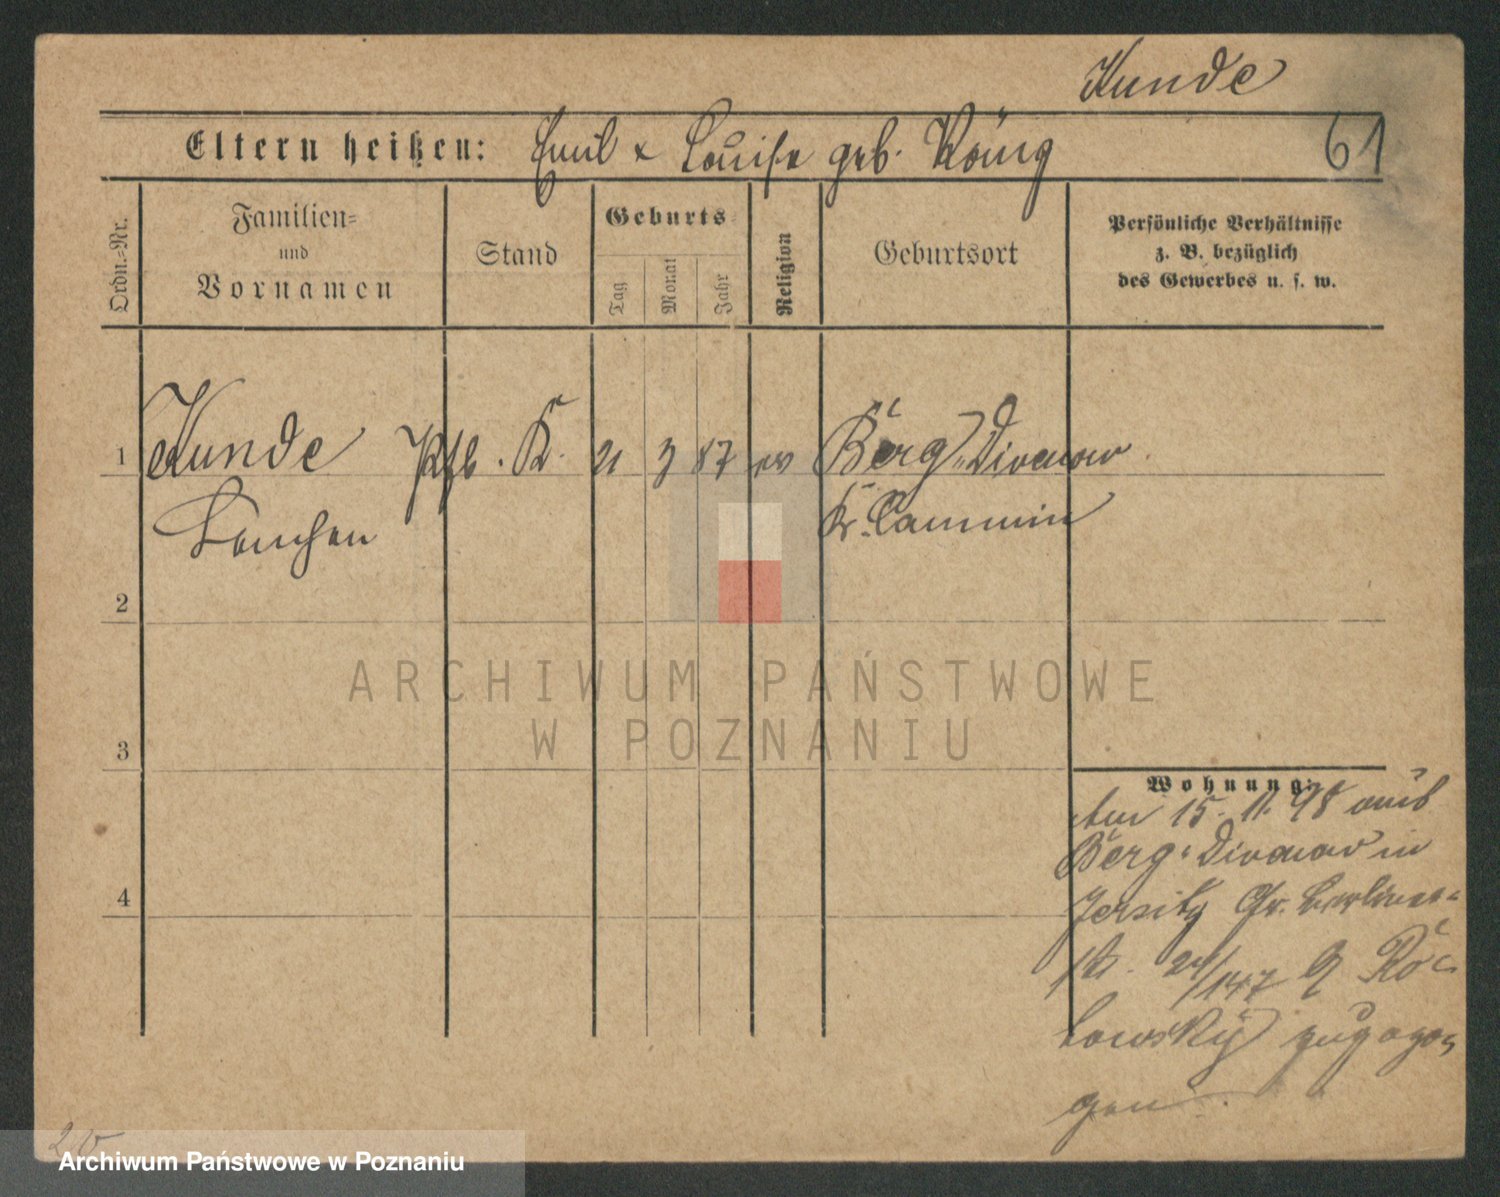 Kunde
61
Eltern heißen: Emil & Louise geb. König
Ordn.-Nr.
Familien-
und
Vornamen
Stand
Geburts-
Tag
Monat
Jahr
Religion
Geburtsort
Persönliche Verhältnisse
z. B. bezüglich
des Gewerbes u. s. w.
1 Kunde Pfl. K. 21 3 87 ev Berg-Divenow
Kr. Cammin
2
ARCHIWUM PAŃSTWOWE
W POZNANIU
3
Wohnung:
am 15. 11. 98 aus
Berg-Divenow in
Jersitz Gr. Berliner-
str. 24/147
zugezo-
gen.
4
Archiwum Państwowe w Poznaniu